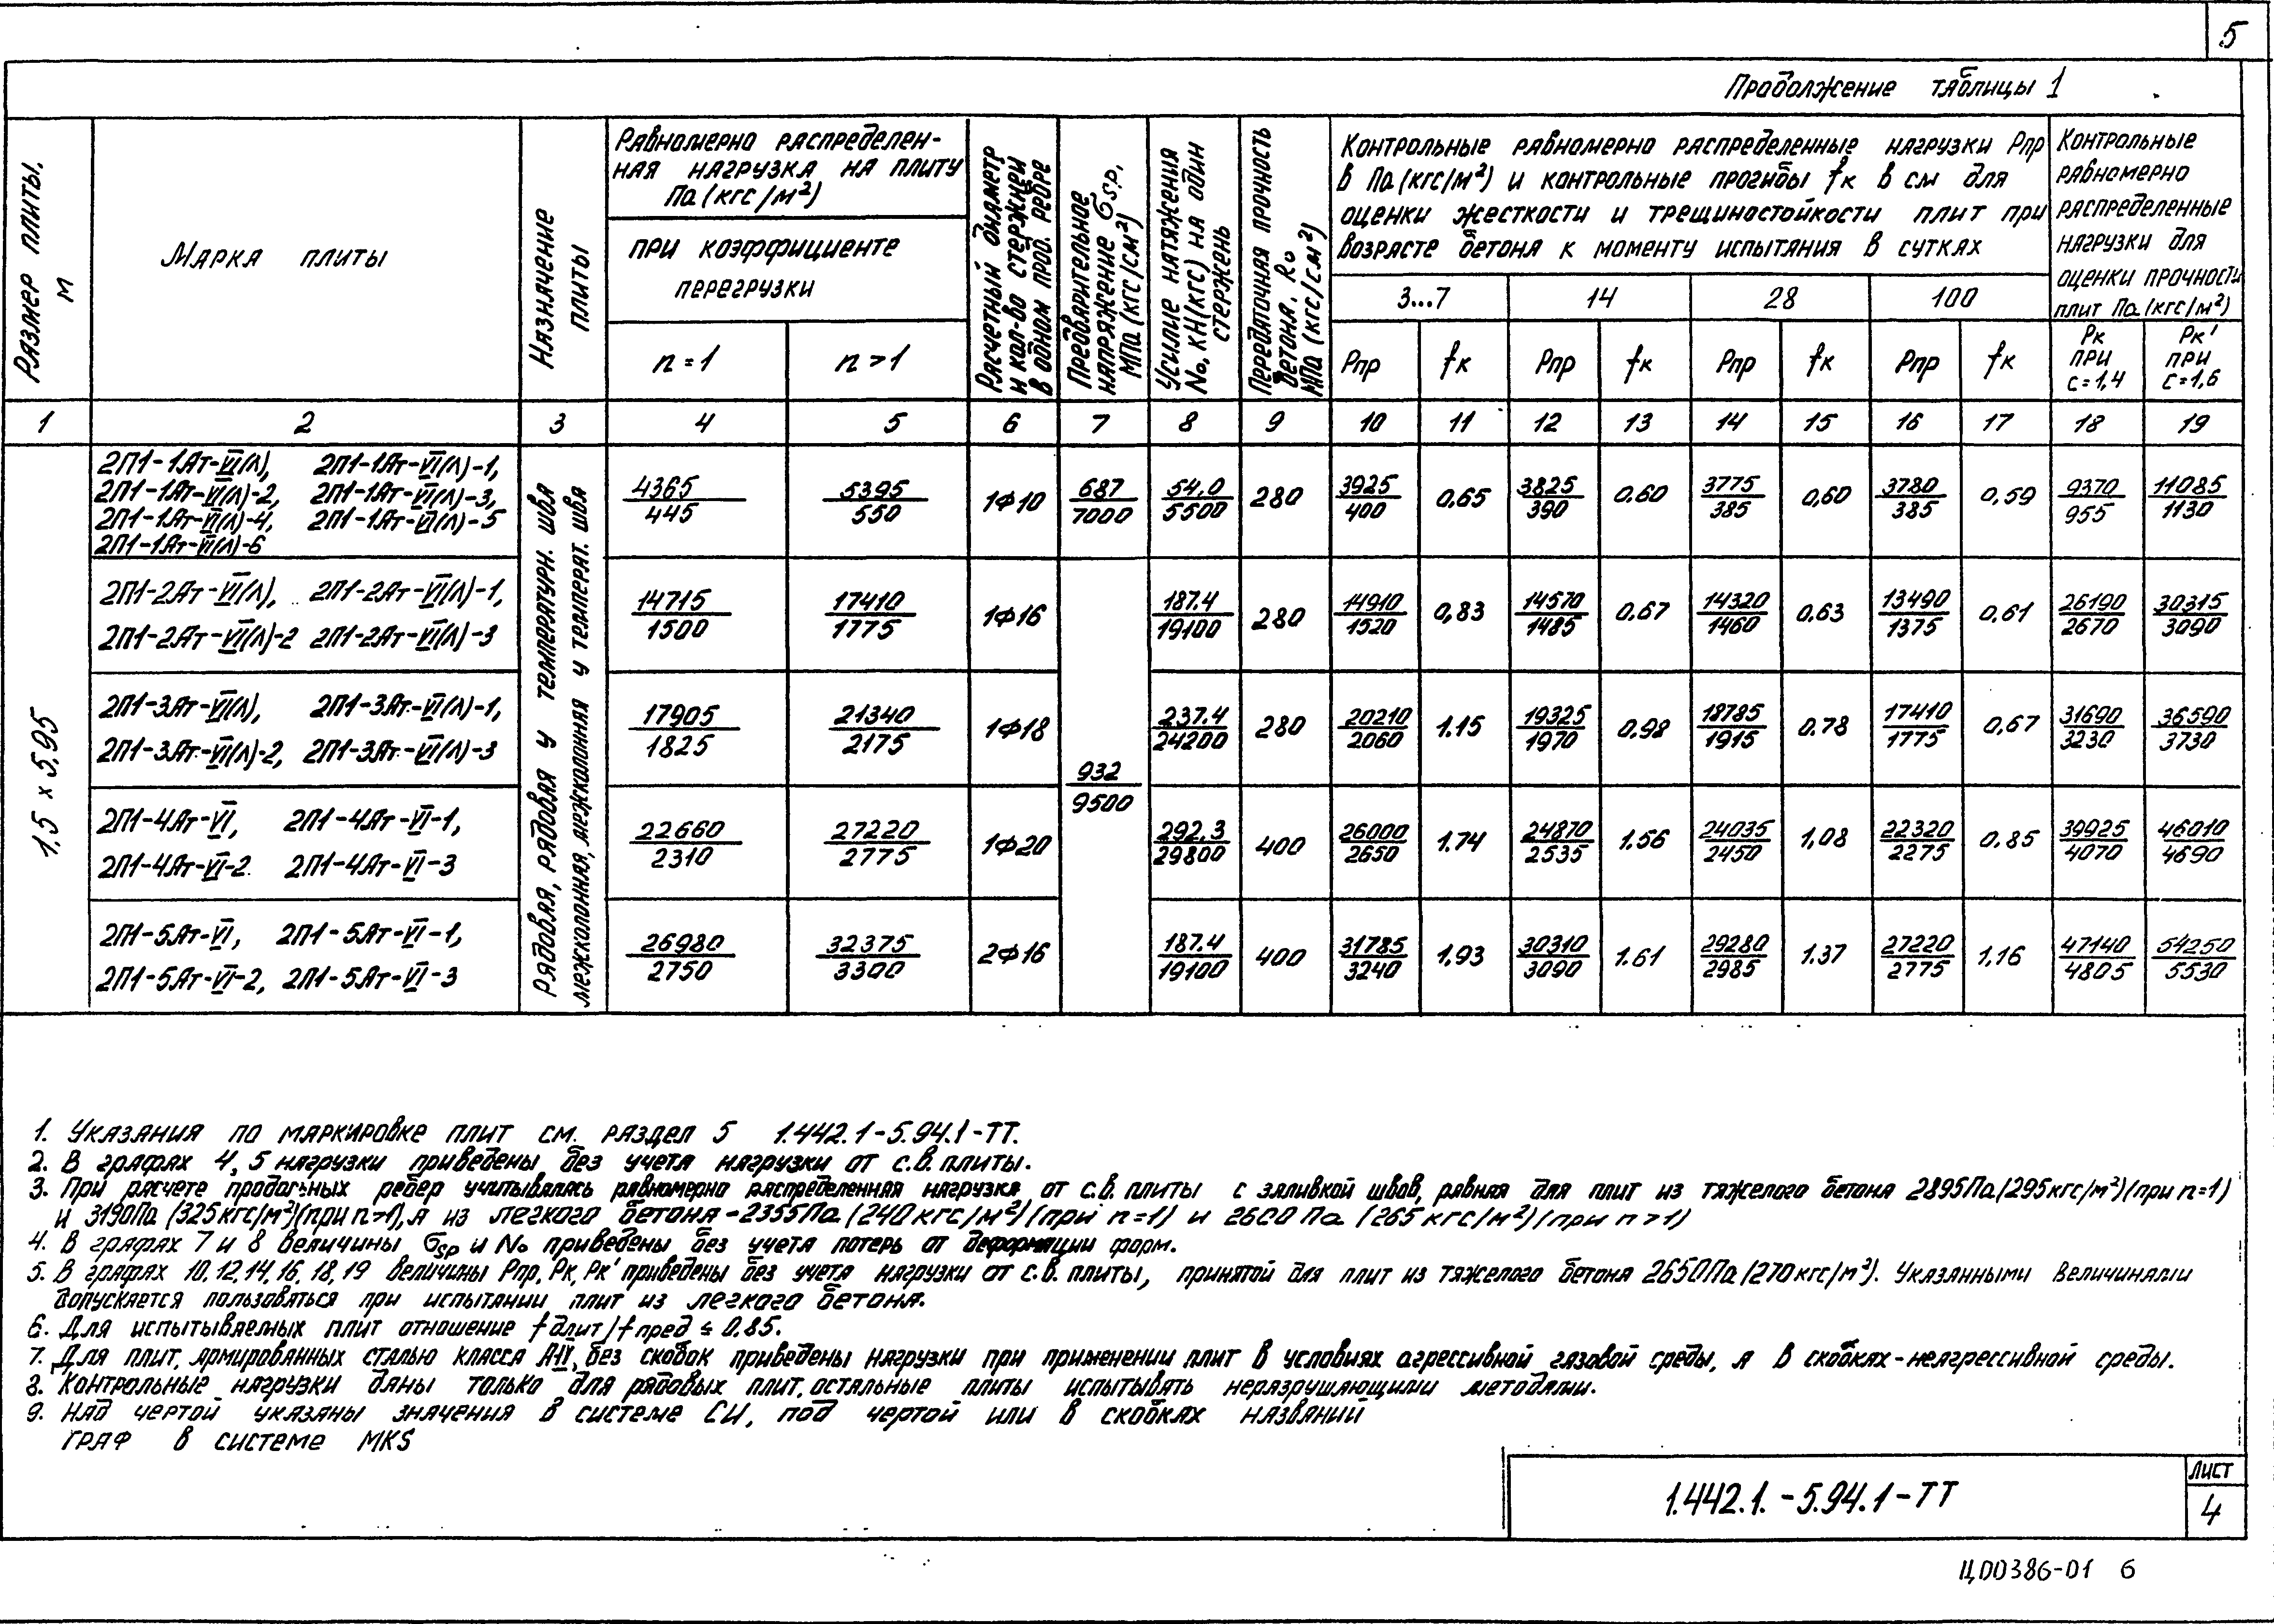 5
Продолжение таблицы 1
Размер плиты, м
Марка плиты
Назначение плиты
Равномерно распределен-
ная нагрузка на плиту
Па (кгс/м²)
при коэффициенте
перегрузки
n = 1
n > 1
Расчетный диаметр
и кол-во стержней
в одном прод. ребре
Предварительное
напряжение σsp,
МПа (кгс/см²)
Усилие натяжения
No, кН (кгс) на один
стержень
Передаточная прочность
бетона, Ro
МПа (кгс/см²)
Контрольные равномерно распределенные нагрузки Рпр
в Па (кгс/м²) и контрольные прогибы fк в см для
оценки жесткости и трещиностойкости плит при
возрасте бетона к моменту испытания в сутках
3...7 14 28 100
Рпр fк Рпр fк Рпр fк Рпр fк
Контрольные
равномерно
распределенные
нагрузки для
оценки прочности
плит Па (кгс/м²)
Рк при с=1,4
Рк' при с=1,6
1 2 3 4 5 6 7 8 9 10 11 12 13 14 15 16 17 18 19
1,5 х 5,95
Рядовая, рядовая у температурн. шва
межколонная, межколонная у температ. шва
2П1-1Ат-VI(Л), 2П1-1Ат-VI(Л)-1,
2П1-1Ат-VI(Л)-2, 2П1-1Ат-VI(Л)-3,
2П1-1Ат-VI(Л)-4, 2П1-1Ат-VI(Л)-5
2П1-1Ат-VI(Л)-6
4365/445 5395/550 1Ф10 687/7000 54.0/5500 280 3925/400 0.65 3825/390 0.60 3775/385 0,60 3780/385 0,59 9370/955 11085/1130
2П1-2Ат-VI(Л), 2П1-2Ат-VI(Л)-1,
2П1-2Ат-VI(Л)-2 2П1-2Ат-VI(Л)-3
14715/1500 17410/1775 1Ф16 187.4/19100 280 14910/1520 0,83 14570/1485 0.67 14320/1460 0.63 13490/1375 0,61 26190/2670 30315/3090
2П1-3Ат-VI(Л), 2П1-3Ат-VI(Л)-1,
2П1-3Ат-VI(Л)-2, 2П1-3Ат-VI(Л)-3
17905/1825 21340/2175 1Ф18 237.4/24200 280 20210/2060 1.15 19325/1970 0.98 18785/1915 0.78 17410/1775 0,67 31690/3230 36590/3730
932/9500
2П1-4Ат-VI, 2П1-4Ат-VI-1,
2П1-4Ат-VI-2. 2П1-4Ат-VI-3
22660/2310 27220/2775 1Ф20 292.3/29800 400 26000/2650 1.74 24870/2535 1.56 24035/2450 1,08 22320/2275 0.85 39925/4070 46010/4690
2П1-5Ат-VI, 2П1-5Ат-VI-1,
2П1-5Ат-VI-2, 2П1-5Ат-VI-3
26980/2750 32375/3300 2Ф16 187.4/19100 400 31785/3240 1.93 30310/3090 1.61 29280/2985 1.37 27220/2775 1,16 47140/4805 54250/5530
1. Указания по маркировке плит см. раздел 5 1.442.1-5.94.1-ТТ.
2. В графах 4,5 нагрузки приведены без учета нагрузки от с.в. плиты.
3. При расчете продольных ребер учитывалась равномерно распределенная нагрузка от с.в. плиты с заливкой швов, равная для плит из тяжелого бетона 2895Па (295кгс/м²)(при n=1)
и 3190Па (325кгс/м²)(при n>1), а из легкого бетона - 2355Па (240кгс/м²)(при n=1) и 2600 Па (265кгс/м²)(при n>1)
4. В графах 7 и 8 величины σsp и No приведены без учета потерь от деформации форм.
5. В графах 10,12,14,16,18,19 величины Рпр, Рк, Рк' приведены без учета нагрузки от с.в. плиты, принятой для плит из тяжелого бетона 2650Па (270кгс/м²). Указанными величинами
допускается пользоваться при испытании плит из легкого бетона.
6. Для испытываемых плит отношение fдлит/fпред ≤ 0.85.
7. Для плит, армированных сталью класса А-IV, без скобок приведены нагрузки при применении плит в условиях агрессивной газовой среды, а в скобках - неагрессивной среды.
8. Контрольные нагрузки даны только для рядовых плит, остальные плиты испытывать неразрушающими методами.
9. Над чертой указаны значения в системе СИ, под чертой или в скобках названий
граф в системе MKS
1.442.1.-5.94.1-ТТ
Лист
4
Ц00386-01 6